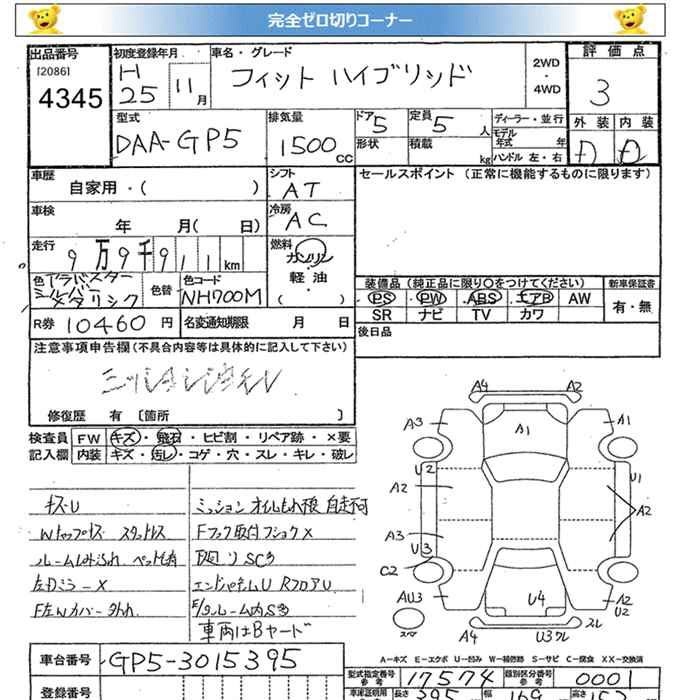 完全ゼロ切りコーナー
出品番号
[2086]
4345
初度登録年月
H
25 11 月
車名・グレード
フィット ハイブリッド
2WD
・
4WD
評価点
3
外装 内装
D D
型式
DAA-GP5
排気量
1500 CC
ドア 5
定員 5 人
形状
積載 kg
ディーラー・並行
モデル年式 年
ハンドル 左・右
車歴
自家用・( )
シフト
AT
セールスポイント (正常に機能するものに限ります)
車検
年 月( 日)
冷房
AC
走行
9万9千911 km
燃料
ガソリン
・
軽油
( )
色 アラバスターシルバーメタリック
色替
色コード
NH700M
装備品 (純正品に限り○をつけてください)
PS PW ABS エアB AW
SR ナビ TV カワ
新車保証書
有・無
R券 10460 円
名変通知期限 月 日
後日品
注意事項申告欄(不具合内容等は具体的に記入して下さい)
修復歴 有 〔箇所 〕
検査員 FW キズ・飛石・ヒビ割・リペア跡・×要
記入欄 内装 キズ・汚レ・コゲ・穴・スレ・キレ・破レ
キズU
ミッションオイルもれ 自走不可
Fフック取付 ×
下廻りSC3
左ミラー×
エンドパネルU RフロアU
F左Wカバー
車両はBヤード
A4 A2
A3 A1 A1
U2 U1
A2 A2
A3
U3
C2
AU3 U4 A2
U2
スペア
A4 U3 スレ
A-キズ E-エクボ U-凹み W-補修跡 S-サビ C-腐食 XX-交換済
車台番号 GP5-3015395
型式指定番号 参考 17574
類別区分番号 参考 0001
登録番号
車庫証明用 長さ 395 幅 169 高さ